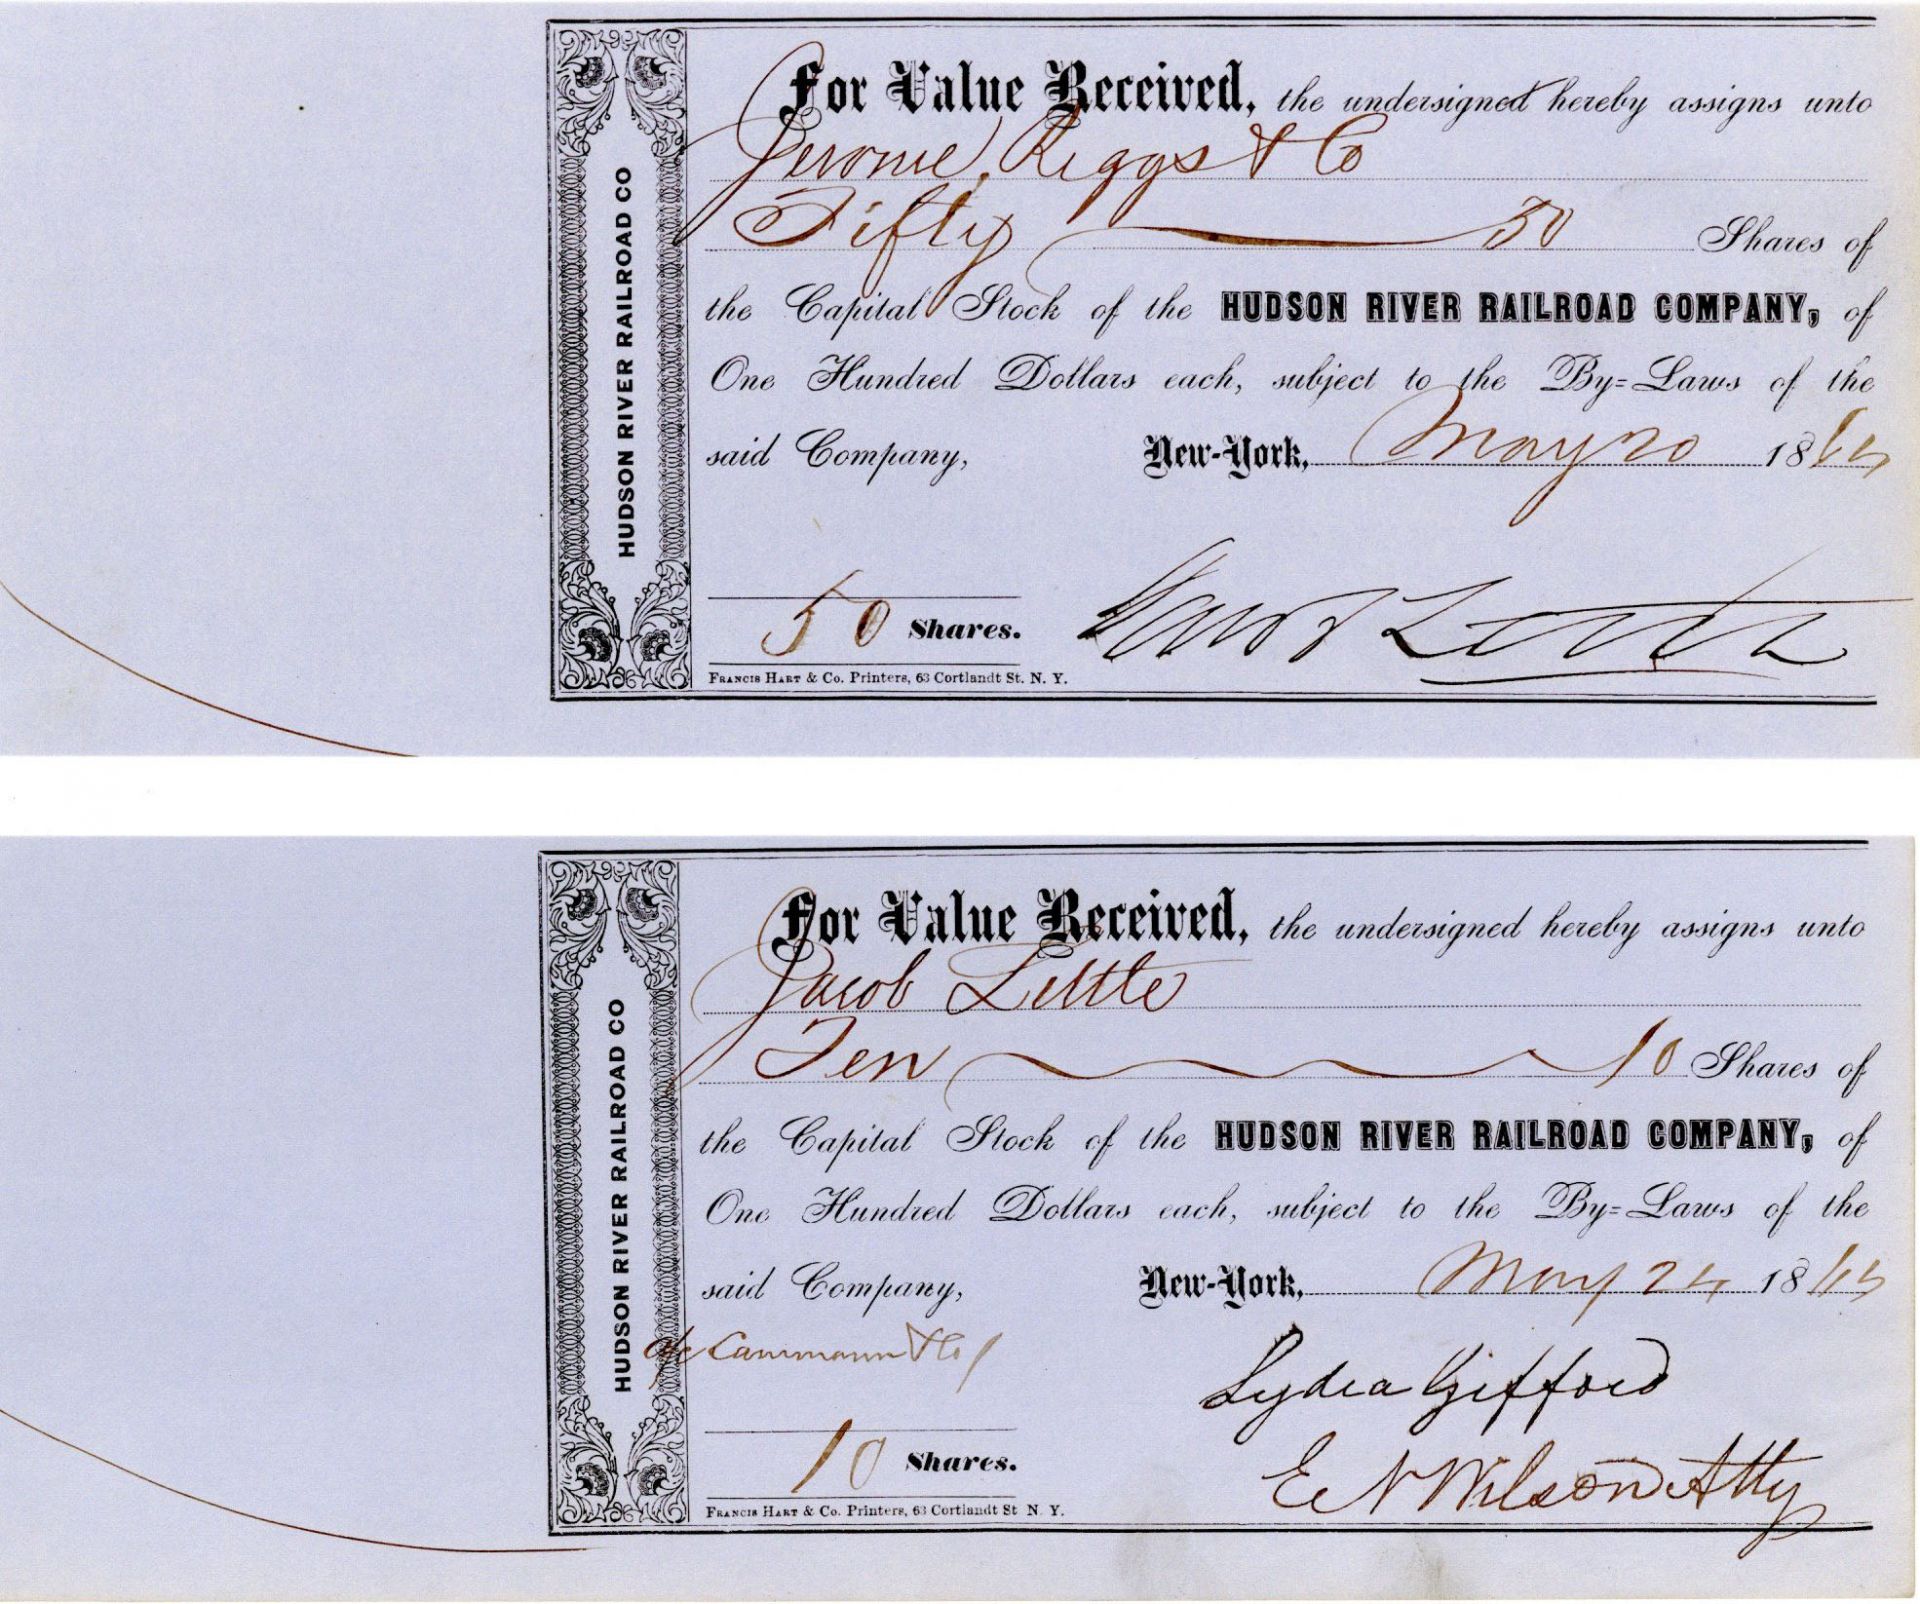 HUDSON RIVER RAILROAD CO
For Value Received, the undersigned hereby assigns unto
Jerome, Riggs & Co
Fifty 50 Shares of
the Capital Stock of the HUDSON RIVER RAILROAD COMPANY, of
One Hundred Dollars each, subject to the By=Laws of the
said Company, New-York, May 20 1864
50 Shares.
FRANCIS HART & Co. Printers, 63 Cortlandt St. N. Y.
HUDSON RIVER RAILROAD CO
For Value Received, the undersigned hereby assigns unto
Jacob Little
Ten 10 Shares of
the Capital Stock of the HUDSON RIVER RAILROAD COMPANY, of
One Hundred Dollars each, subject to the By=Laws of the
said Company, New-York, May 24 1864
Cammann & Co
Lydia Gifford
10 Shares.
E N Wilson Atty
FRANCIS HART & Co. Printers, 63 Cortlandt St N. Y.